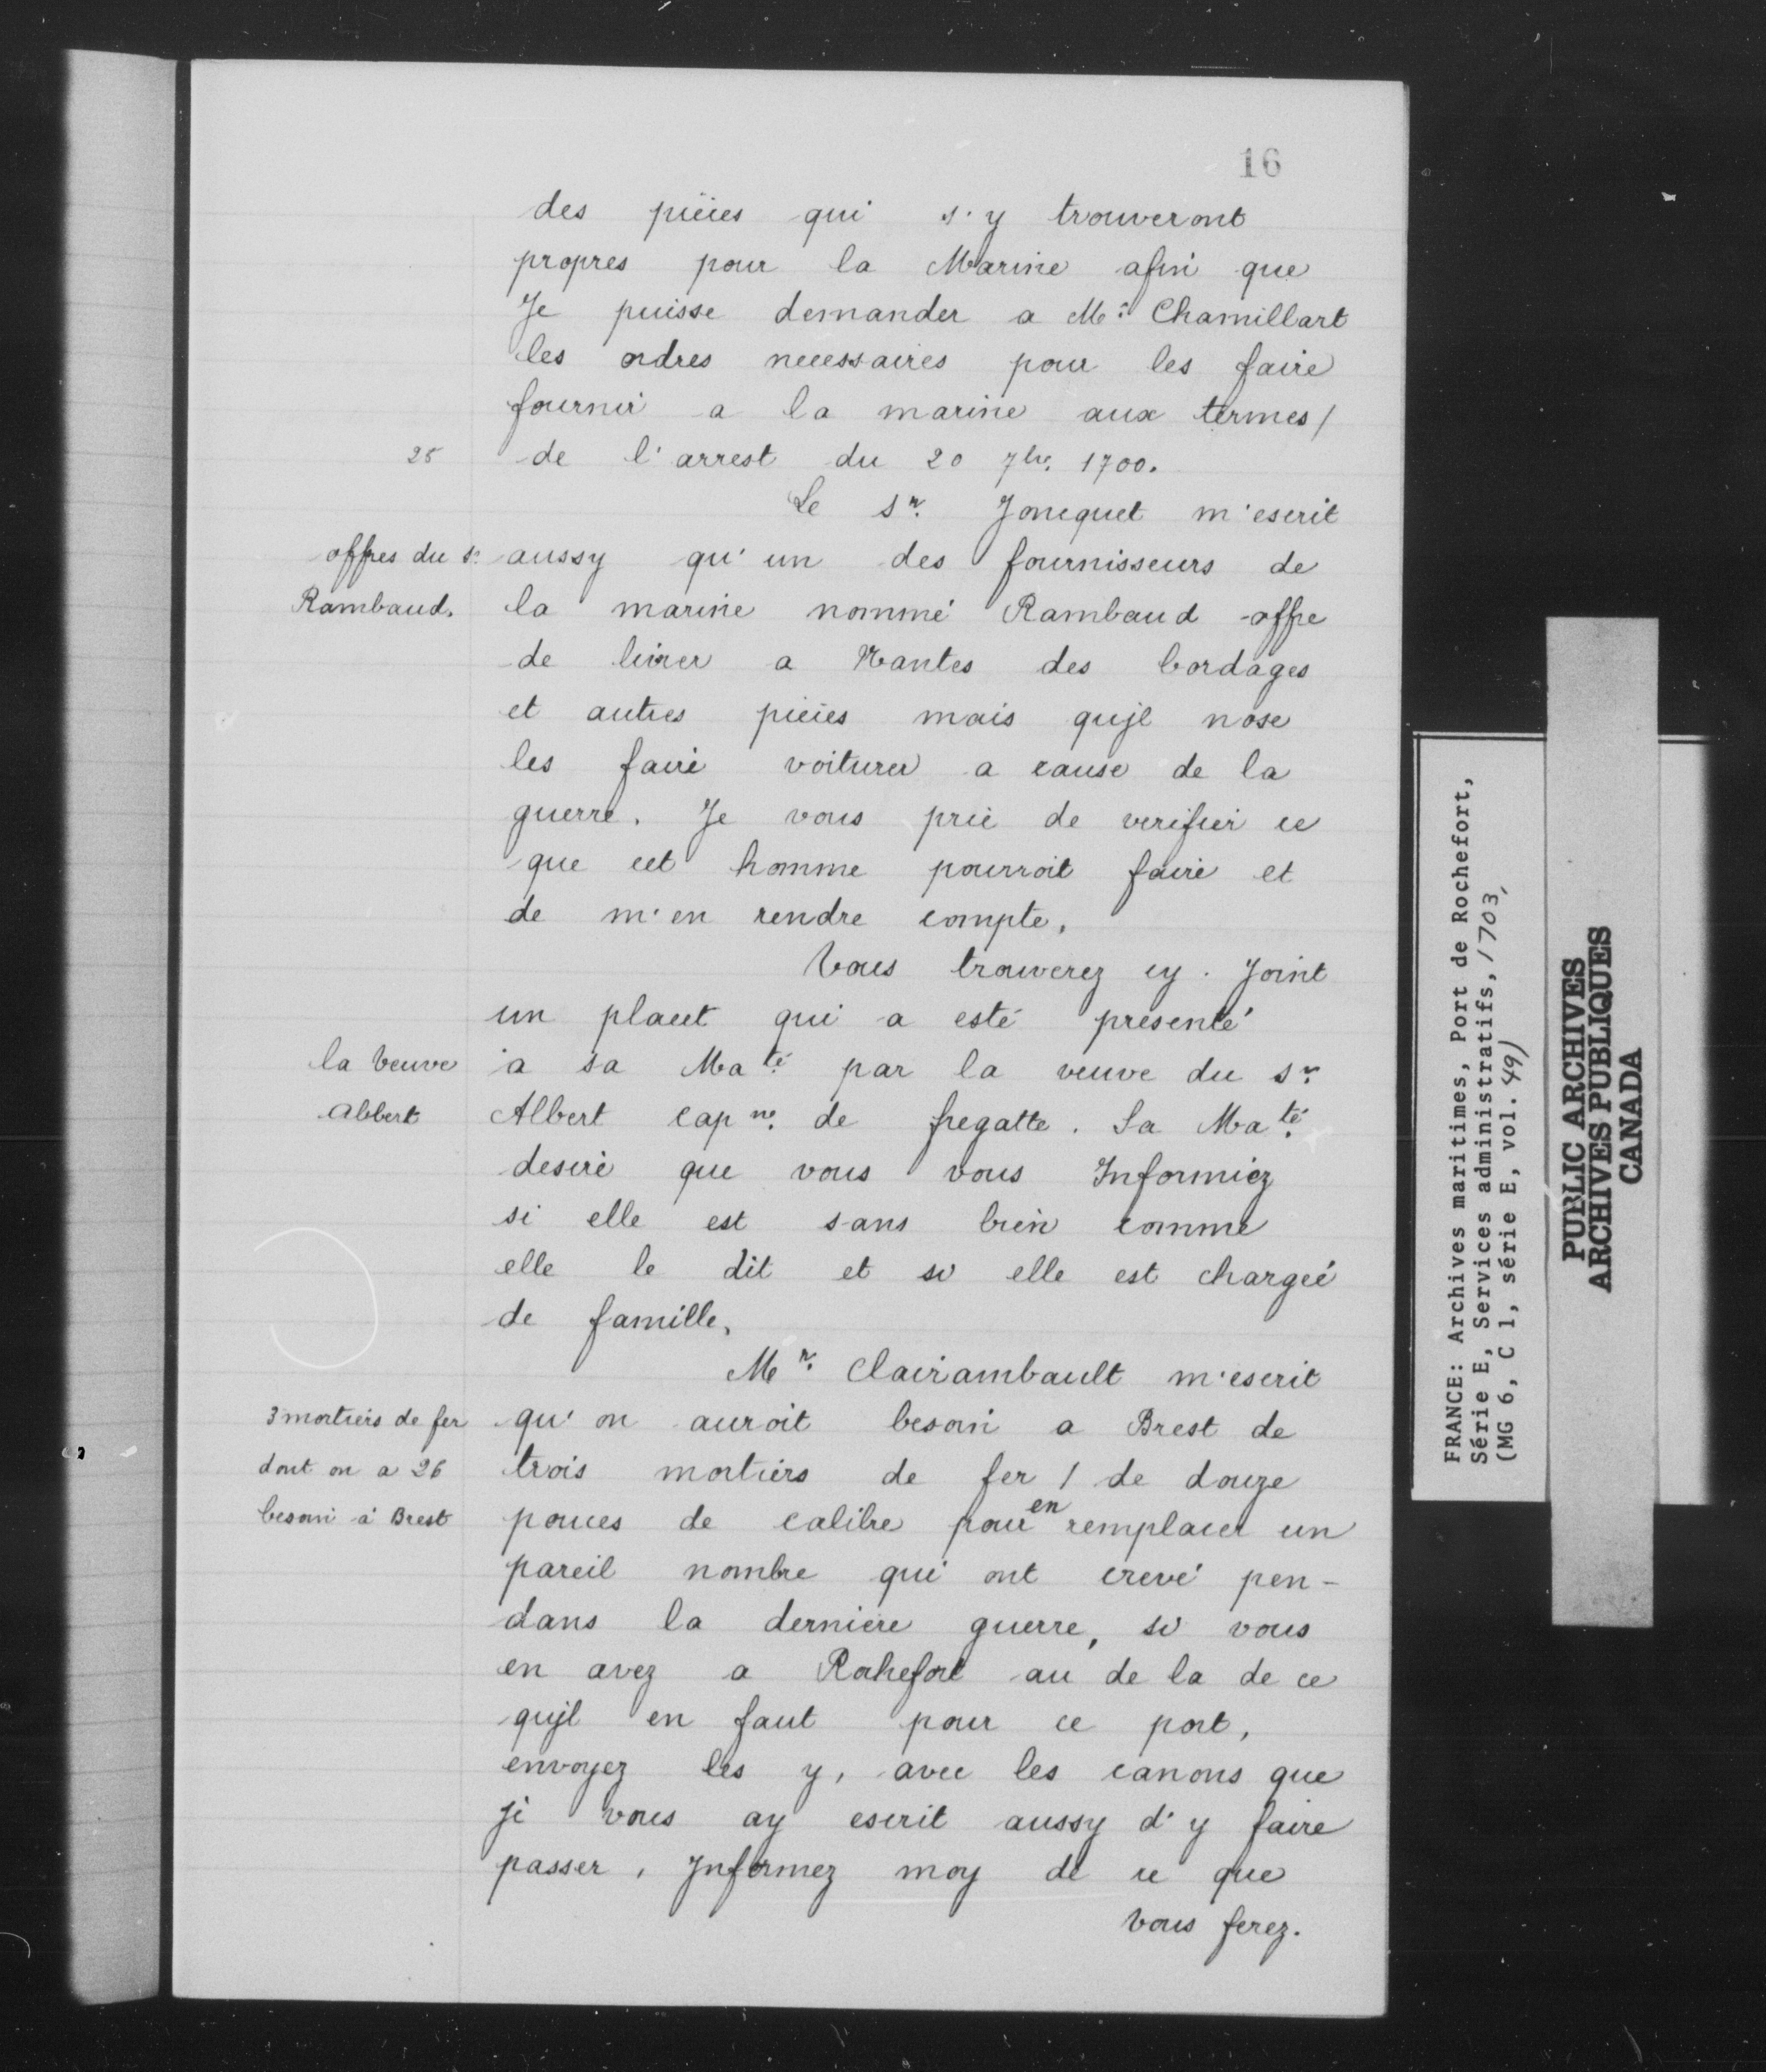 16
des pièces qui s'y trouveront
propres pour la Marine afin que
Je puisse demander a Mr. Chamillart
les ordres necessaires pour les faire
fournir a la marine aux termes /
25 de l'arrest du 20 7bre. 1700.
Le sr. Joncquet m'escrit
offres du sr. aussy qu'un des fournisseurs de
Rambaud. la marine nommé Rambaud offre
de livrer a Nantes des bordages
et autres pièces mais qujl nose
les faire voiturer a cause de la
guerre. Je vous prie de verifier ce
que cet homme pourroit faire et
de m'en rendre compte.
Vous trouverez cy. Joint
un placet qui a esté presenté
la veuve à sa Maté. par la veuve du sr.
Albert Albert capne. de fregatte. Sa Maté.
desire que vous vous Informiez
si elle est sans bien comme
elle le dit et si elle est chargée
de famille.
Mr. Clairambault m'escrit
3 mortiers de fer qu'on auroit besoin a Brest de
dont on a 26 trois mortiers de fer / de douze
besoin à Brest pouces de calibre pour en remplacer un
pareil nombre qui ont crevé pen-
dans la derniere guerre, si vous
en avez a Rochefort au de la de ce
qujl en faut pour ce port,
envoyez les y, avec les canons que
je vous ay escrit aussy d'y faire
passer, Jnformez moy de ce que
vous ferez.
FRANCE: Archives maritimes, Port de Rochefort,
Série E, Services administratifs, 1703,
(MG 6, C 1, série E, vol. 49)
PUBLIC ARCHIVES
ARCHIVES PUBLIQUES
CANADA